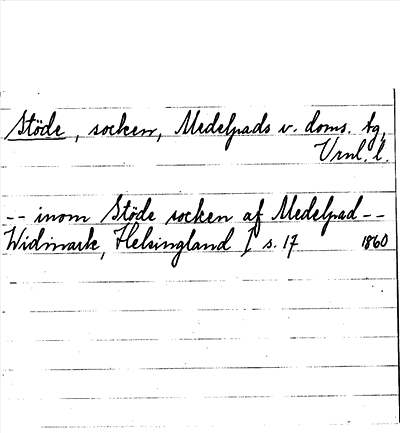 Stöde, socken, Medelpads v. doms. tg,
Vrnl. l.
-- inom Stöde socken af Medelpad --
Widmark, Helsingland I s. 17 1860